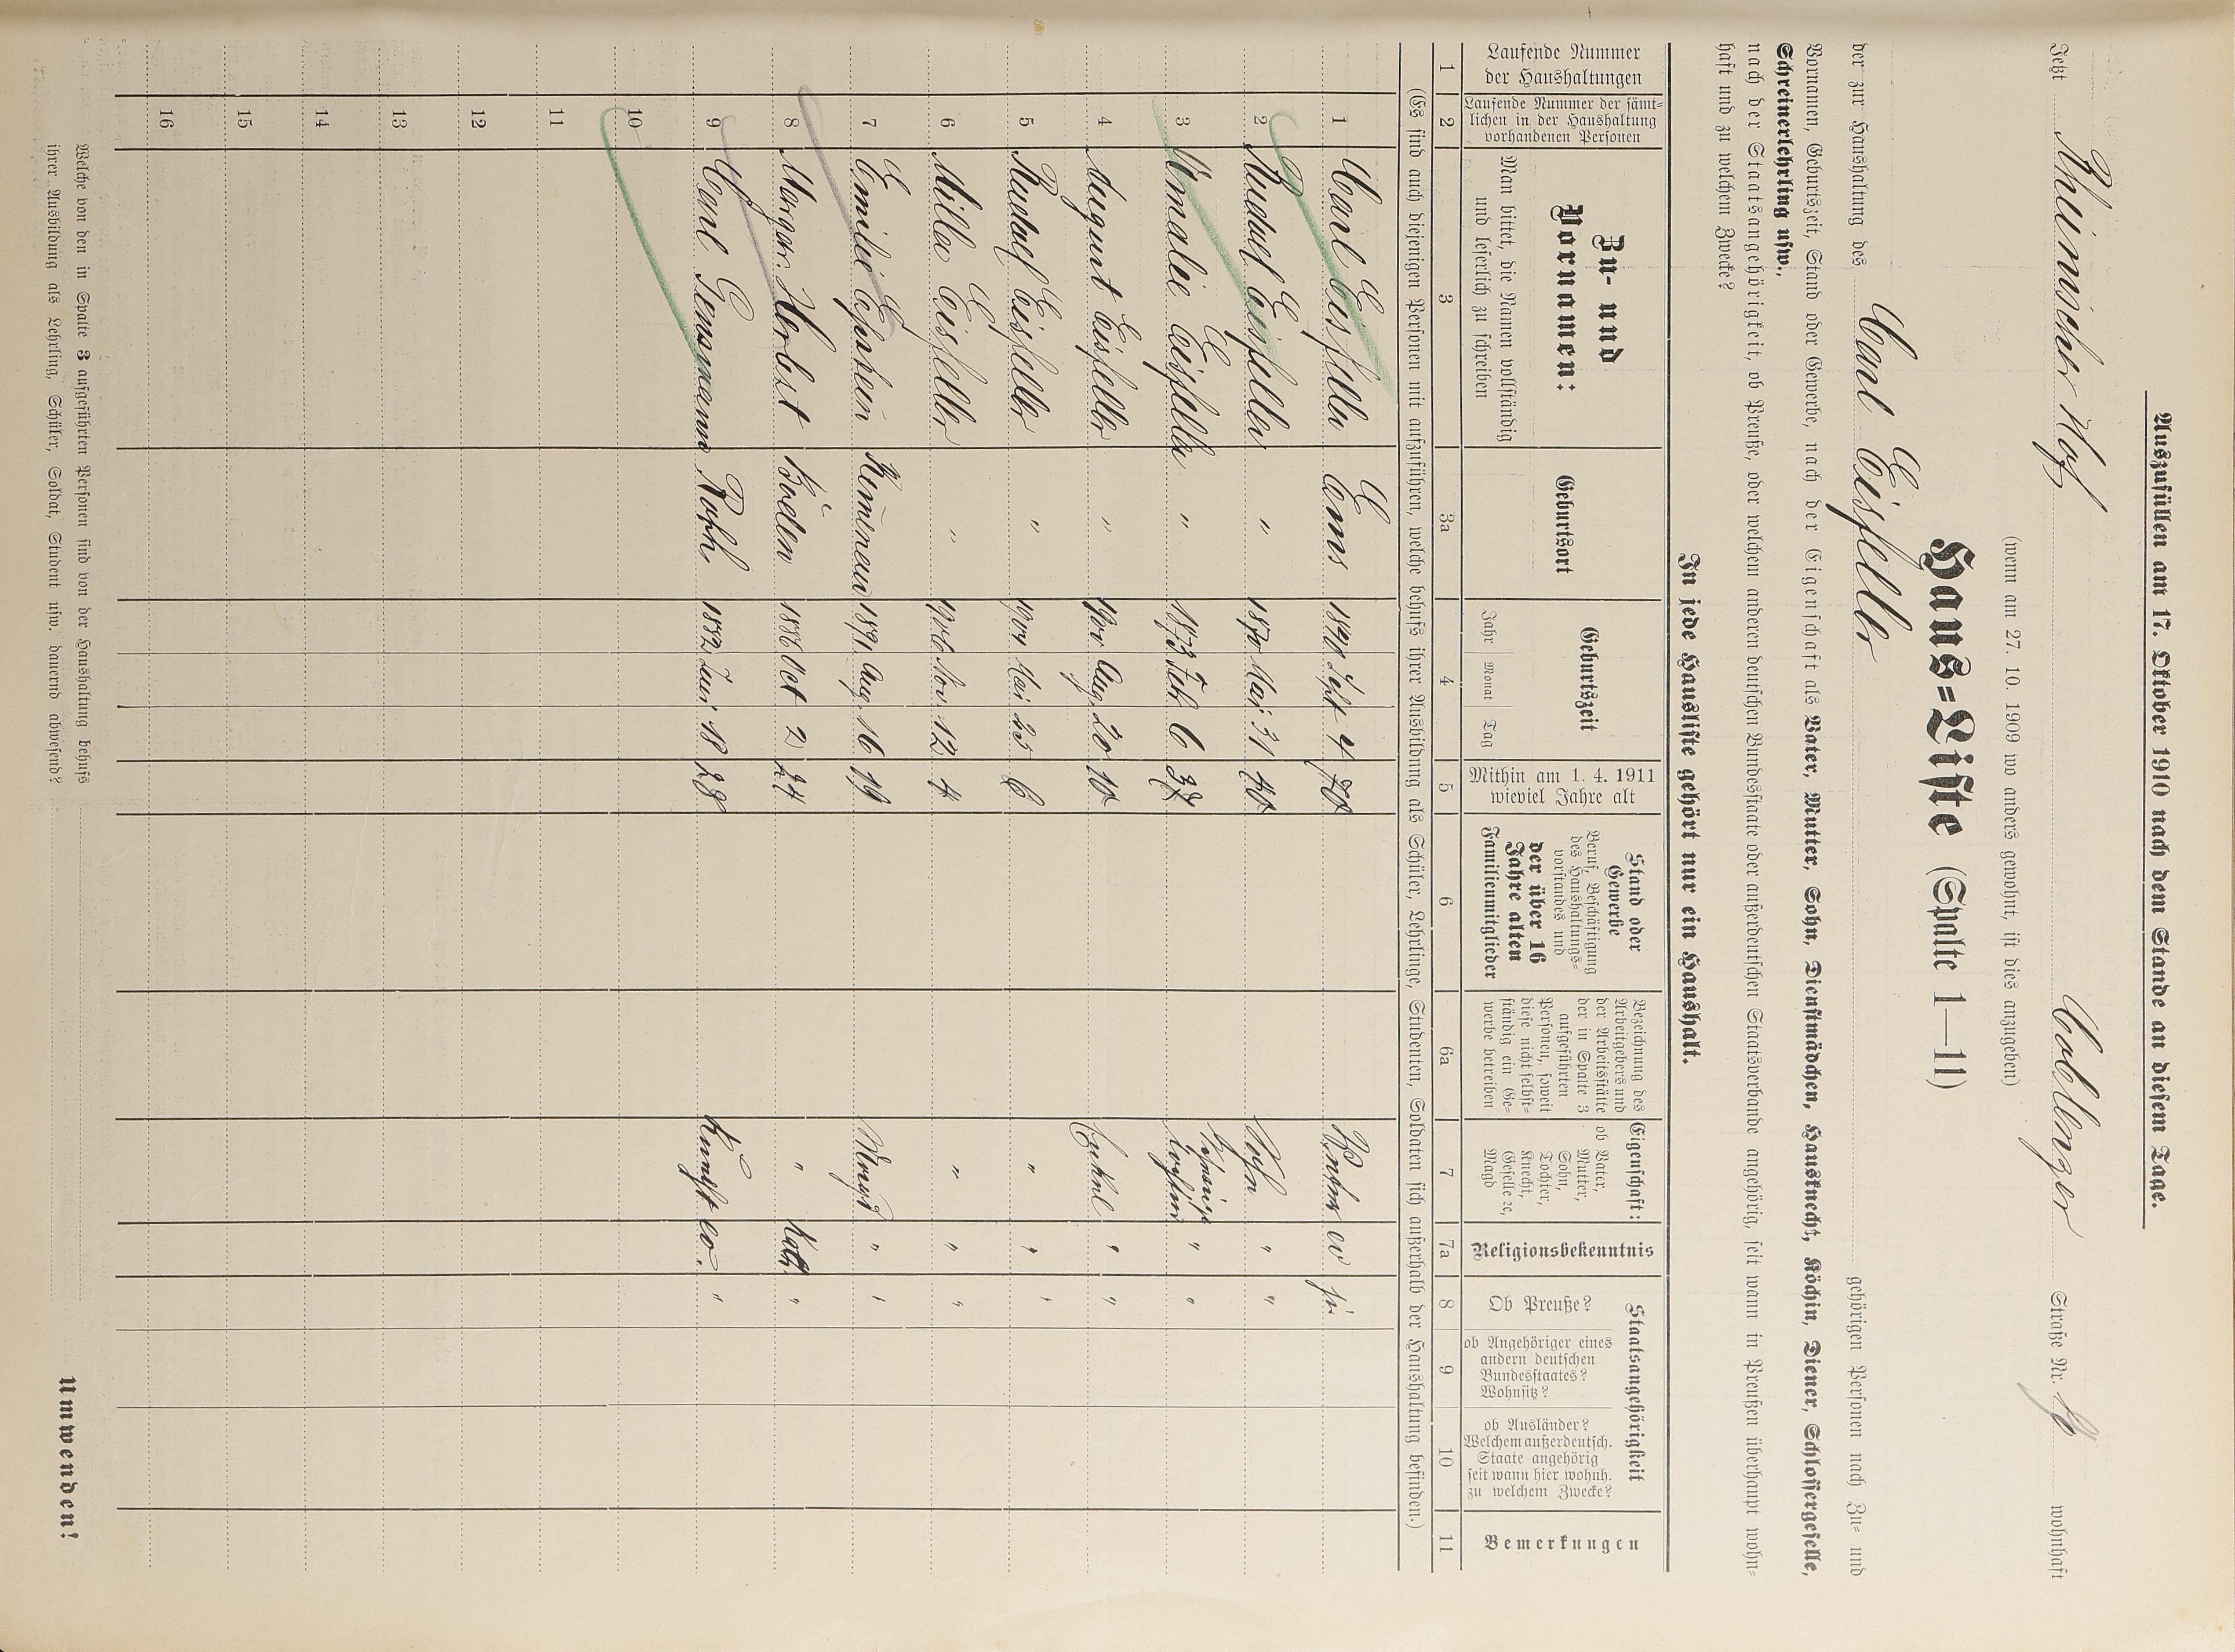 Auszufüllen am 17. Oktober 1910 nach dem Stande an diesem Tage.
Jetzt Rheinischer Hof Coblenzer Straße Nr. wohnhaft
(wenn am 27. 10. 1909 wo anders gewohnt, ist dies anzugeben)
Haus=Liste (Spalte 1—11)
der zur Haushaltung des Carl Eisfeller gehörigen Personen nach Zu= und
Vornamen, Geburtszeit, Stand oder Gewerbe, nach der Eigenschaft als Vater, Mutter, Sohn, Dienstmädchen, Hausknecht, Köchin, Diener, Schlossergeselle,
Schreinerlehrling usw.,
nach der Staatsangehörigkeit, ob Preuße, oder welchem anderen deutschen Bundesstaate oder außerdeutschen Staatsverbande angehörig, seit wann in Preußen überhaupt wohn=
haft und zu welchem Zwecke?
In jede Hausliste gehört nur ein Haushalt.
Laufende Nummer
der Haushaltungen
Laufende Nummer der sämt=
lichen in der Haushaltung
vorhandenen Personen
Zu- und
Vornamen:
Man bittet, die Namen vollständig
und leserlich zu schreiben
Geburtsort
Geburtszeit
Jahr Monat Tag
Mithin am 1. 4. 1911
wieviel Jahre alt
Stand oder
Gewerbe
Beruf, Beschäftigung
des Haushaltungs=
vorstandes und
der über 16
Jahre alten
Familienmitglieder
Bezeichnung des
Arbeitgebers und
der Arbeitsstätte
der in Spalte 3
aufgeführten
Personen, soweit
diese nicht selbst=
ständig ein Ge=
werbe betreiben
Eigenschaft:
ob Vater,
Mutter,
Sohn,
Tochter,
Knecht,
Geselle ec,
Magd
Religionsbekenntnis
Staatsangehörigkeit
Ob Preuße?
ob Angehöriger eines
andern deutschen
Bundesstaates?
Wohnsitz?
ob Ausländer?
Welchem außerdeutsch.
Staate angehörig
seit wann hier wohnh.
zu welchem Zwecke?
Bemerkungen
1 2 3 3a 4 5 6 6a 7 7a 8 9 10 11
(Es sind auch diejenigen Personen mit aufzuführen, welche behufs ihrer Ausbildung als Schüler, Lehrlinge, Studenten, Soldaten sich außerhalb der Haushaltung befinden.)
1 Carl Eisfeller Ems Sept 4 70 Vater ev ja
2 Rudolf Eisfeller " 1870 Mai 31 40 Sohn " "
3 Amalie Eisfeller " 1873 Feb 6 Schwieger tochter " "
4 August Eisfeller " Aug. 20 10 Enkel " "
5 Rudolf Eisfeller " 1904 Mai 25 6 " " "
6 Milla Eisfeller " 1906 Nov. 12 4 " " "
7 Emilie 1891 Aug. 16 19 Magd " "
8 Margar. Herbst 1886 Oct 2 24 " Kath. "
9 Carl 1882 Juni 18 28 Knecht ev. "
10
11
12
13
14
15
16
Welche von den in Spalte 3 aufgeführten Personen sind von der Haushaltung behufs
ihrer Ausbildung als Lehrling, Schüler, Soldat, Student usw. dauernd abwesend?
Umwenden!